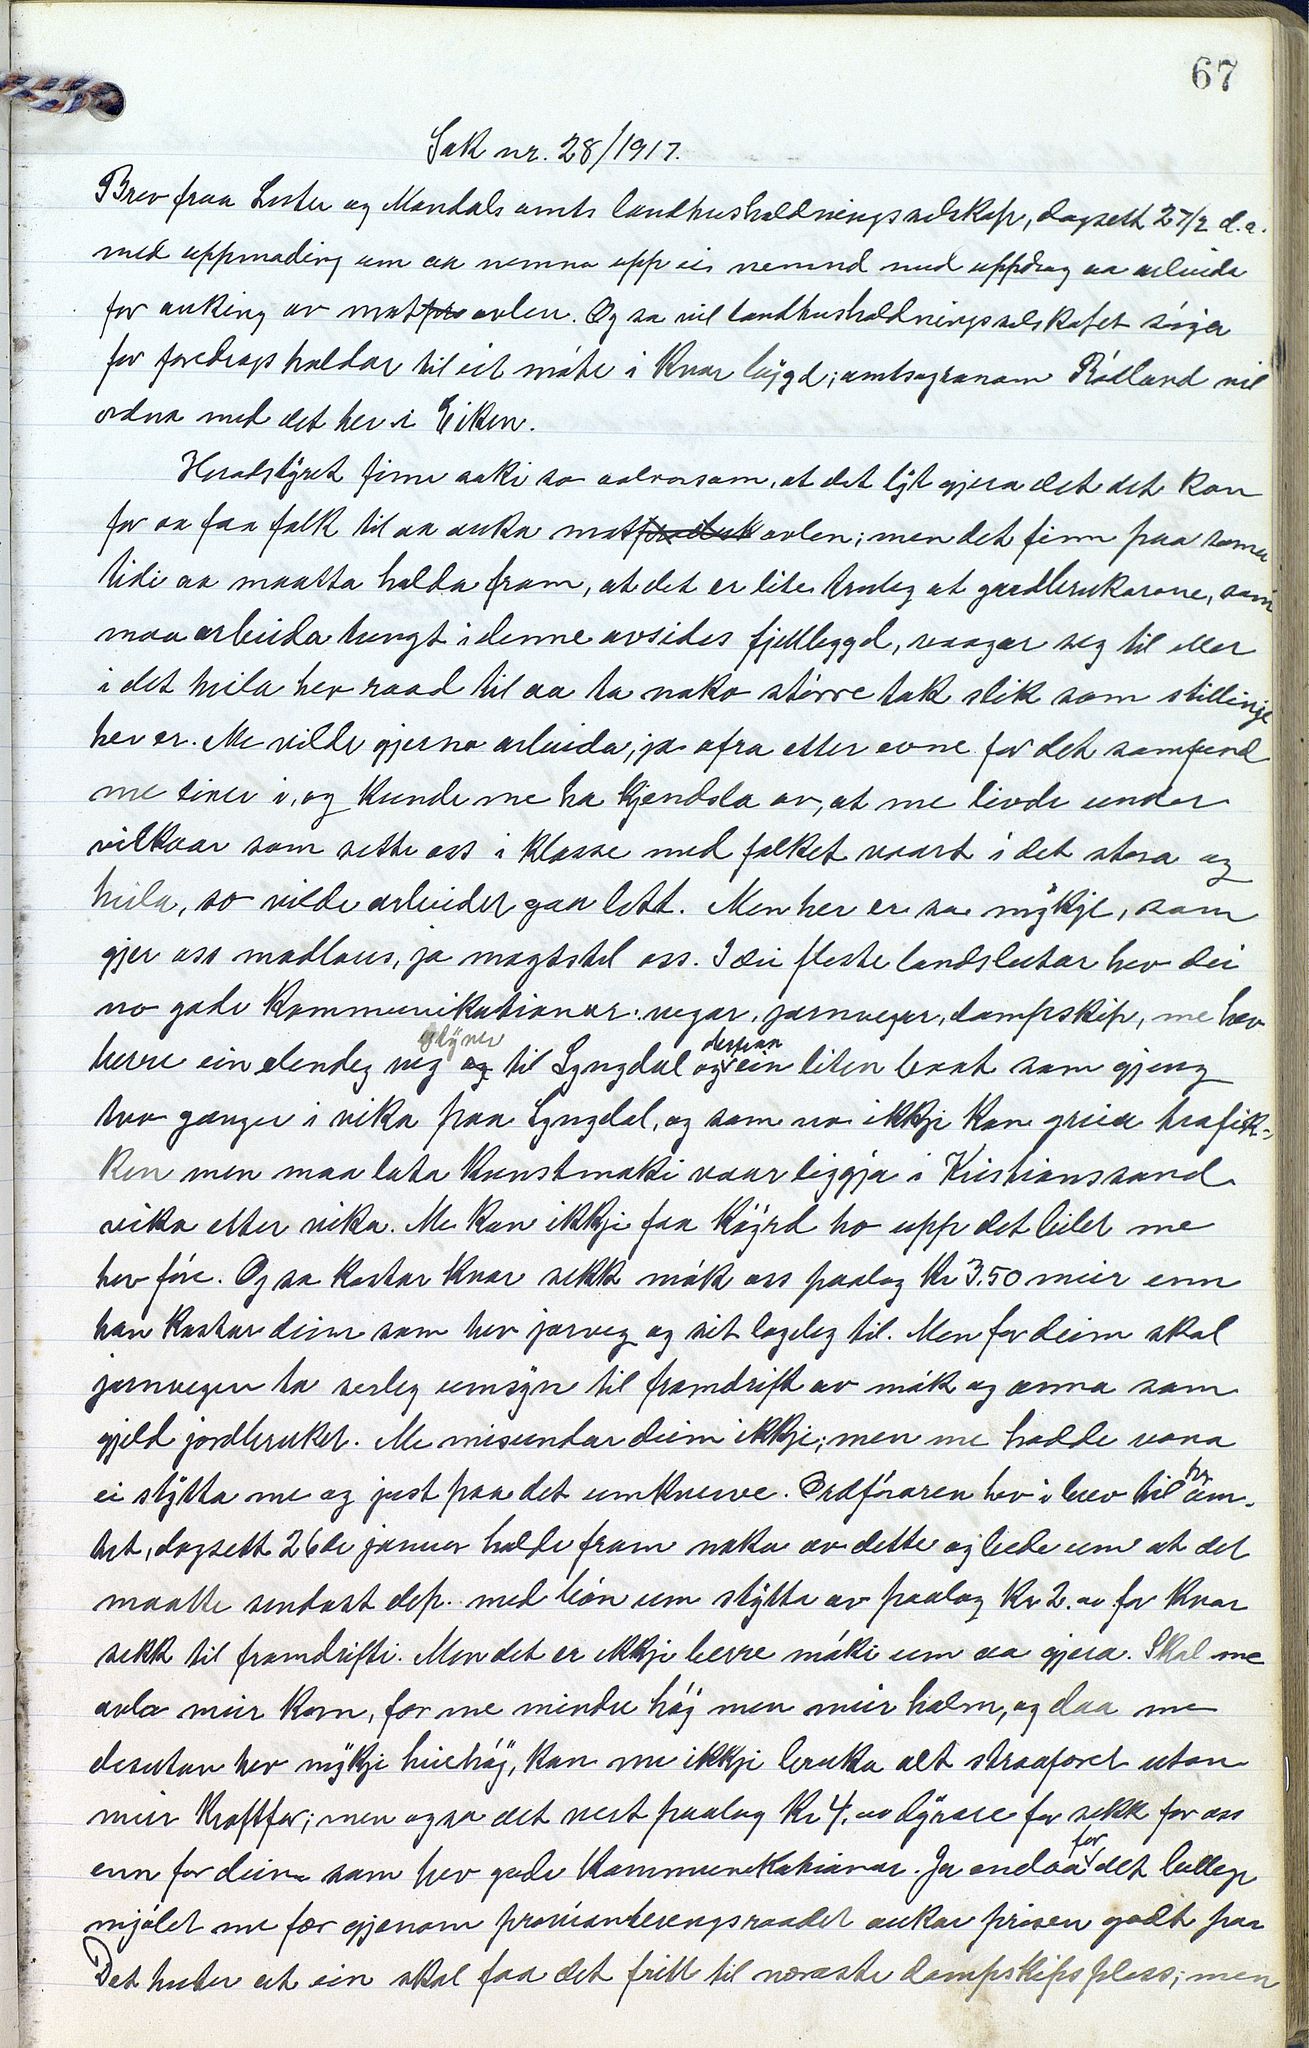 67
Sak nr. 28/1917.
Brev fraa Lister og Mandals amts landhushaldningsselskap, dagsett 27/2 d.a.
med uppmading um aa nemna upp ei nemnd med uppdrag aa arbeida
for auking av matpro avlen. Og so vil landhushaldningsselskapet sörja
for foredragshaldar til eit möte i kvar bygd; amtsagronom Rödland vil
ordna med det her i Eiken.
Heradstyret finn saki so aalvorsam, at det lyt gjera det det kan
for aa faa folk til aa auka matproduk avlen; men det finn paa sama
tidi aa maatta halda fram, at det er lite truleg at gardbrukarane, som
maa arbeida tungt i denne avsides fjellbygd, vaagar seg til eller
i det heila hev raad til aa ta noko större tak slik som stillingi
her er. Me vilde gjerna arbeida, ja ofra etter evne for det samfund
me liver i, og kunde me ha kjendsla av, at me livde under
vilkaar som sette oss i klasse med folket vaart i det stora og
heila, so vilde arbeidet gaa lett. Men her er so mykje, som
gjer oss modlaus, ja magtstel oss. I dei fleste landslutar hev dei
no gode kommunikationar: vegar, jarnvegar, dampskip, me hev
berre ein elendeg veg og til Lyngdal og derfraa ein liten baat som gjeng
two gonger i vika fraa Lyngdal, og som no ikkje kan greia trafik-
ken men maa lata kunstmöki vaar liggja i Kristianssand
vika etter vika. Me kan ikkje faa köyrd ho upp det bilet me
hev före. Og so kostar kvar sekk mök oss paalag kr 3.50 meir enn
han kostar deim som hev jarveg og sit lagleg til. Men for deim skal
jarnvegen ta serleg umsyn til framdrift av mök og anna som
gjeld jordbruket. Me misundar deim ikkje; men me hadde vona
ei stytta me og just paa det umkverve. Ordföraren hev i brev til hr am-
tet, dagsett 26de januar halde fram noko av dette og bede um at det
maatte sendast dep. med bön um stytte av paalag kr 2.00 for kvar
sekk til framdrifti. Men det er ikkje berre möki um aa gjera. Skal me
avla meir korn, fær me mindre höy men meir halm, og daa me
desutan hev mykje heiehöy, kan me ikkje bruka alt straaforet utan
meir kraftfor; men ogso det vert paalag kr 4.00 dyrare for sekk for oss
enn for deim som hev gode kommunikationar. Ja endaa for det billege
mjölet me fær gjenom provianteringsraadet aukar prisen godt paa
Det heiter at ein skal faa det fritt til næraste dampskipsplass; men